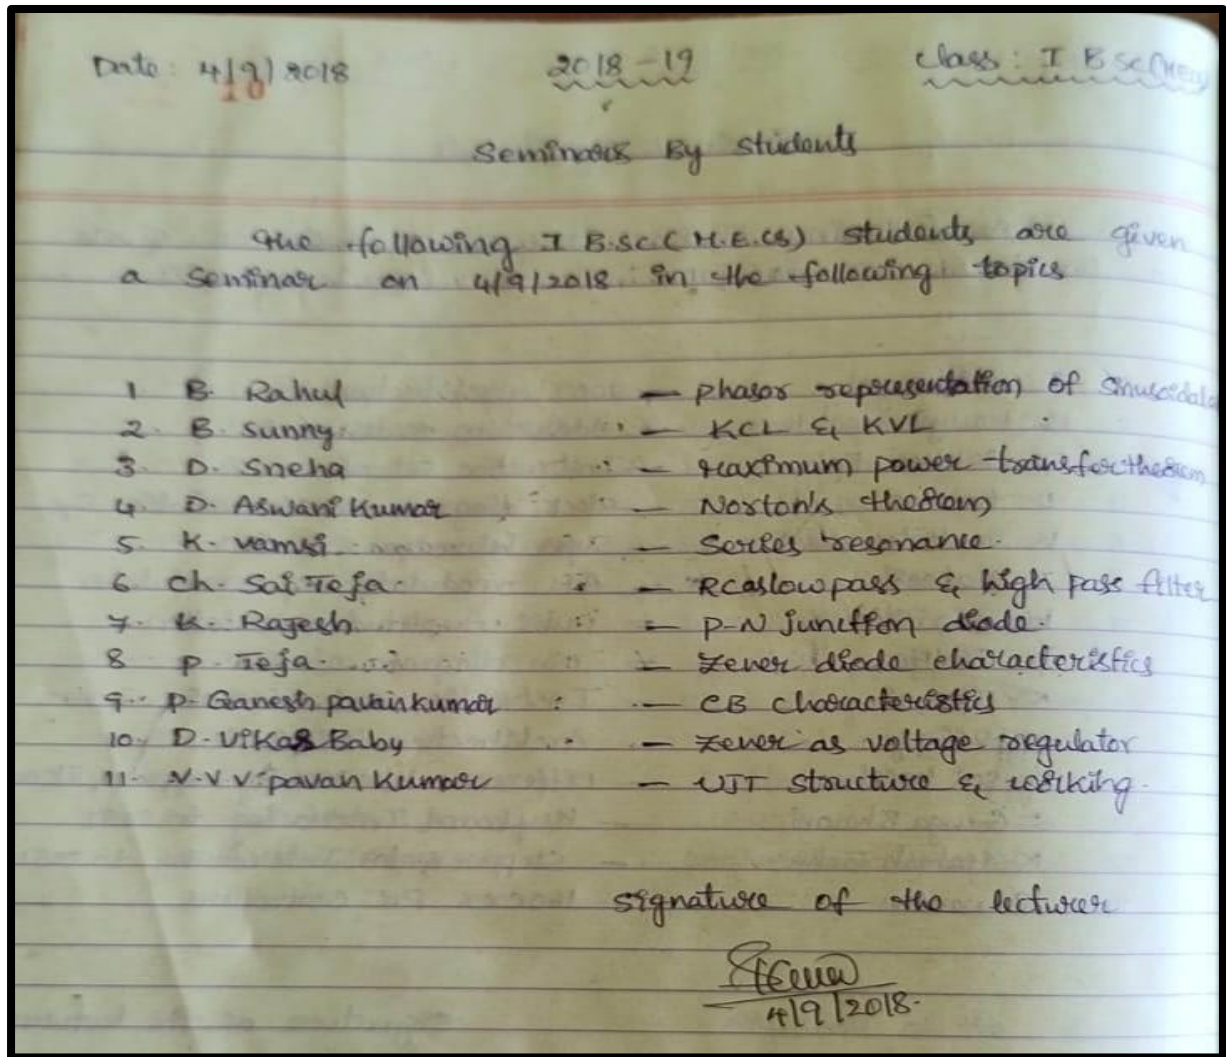 Date: 4/9/2018 2018-19 class: I B.Sc(MECs)
10
Seminars By students
The following I B.Sc (M.E.Cs) students are given
a Seminar on 4/9/2018 in the following topics
1 B. Rahul — phasor representation of sinusoidals
2. B. Sunny — KCL & KVL
3. D. Sneha — Maximum power transfer theorem
4. D. Aswani Kumar — Norton's theorem
5. K. Vamsi — Series resonance.
6 Ch. Sai Teja. — RC as low pass & high pass filter
7. K. Rajesh — P-N junction diode.
8 P. Teja. — Zener diode characteristics
9. P. Ganesh pavan kumar — CB characteristics
10. D. Vikas Baby — Zener as voltage regulator
11. N.V.V. pavan Kumar — UJT structure & working.
signature of the lecturer
4/9/2018.